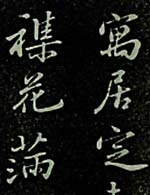 寓居定
襍花滿